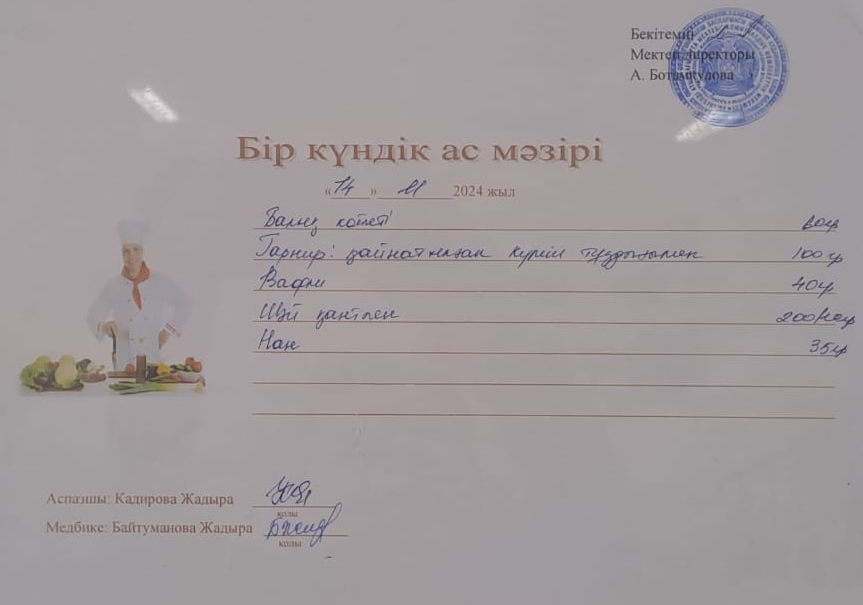 Бекітемін
Мектеп директоры
А. Ботамкулова
Бір күндік ас мәзірі
«14» 11 2024 жыл
Балық котлеті 60гр
Гарнир: қайнатылған күріш тұздығымен 100гр
Вафли 40гр
Шәй қантпен 200/10гр
Нан 35гр
Аспазшы: Кадирова Жадыра
қолы
Медбике: Байтуманова Жадыра
қолы